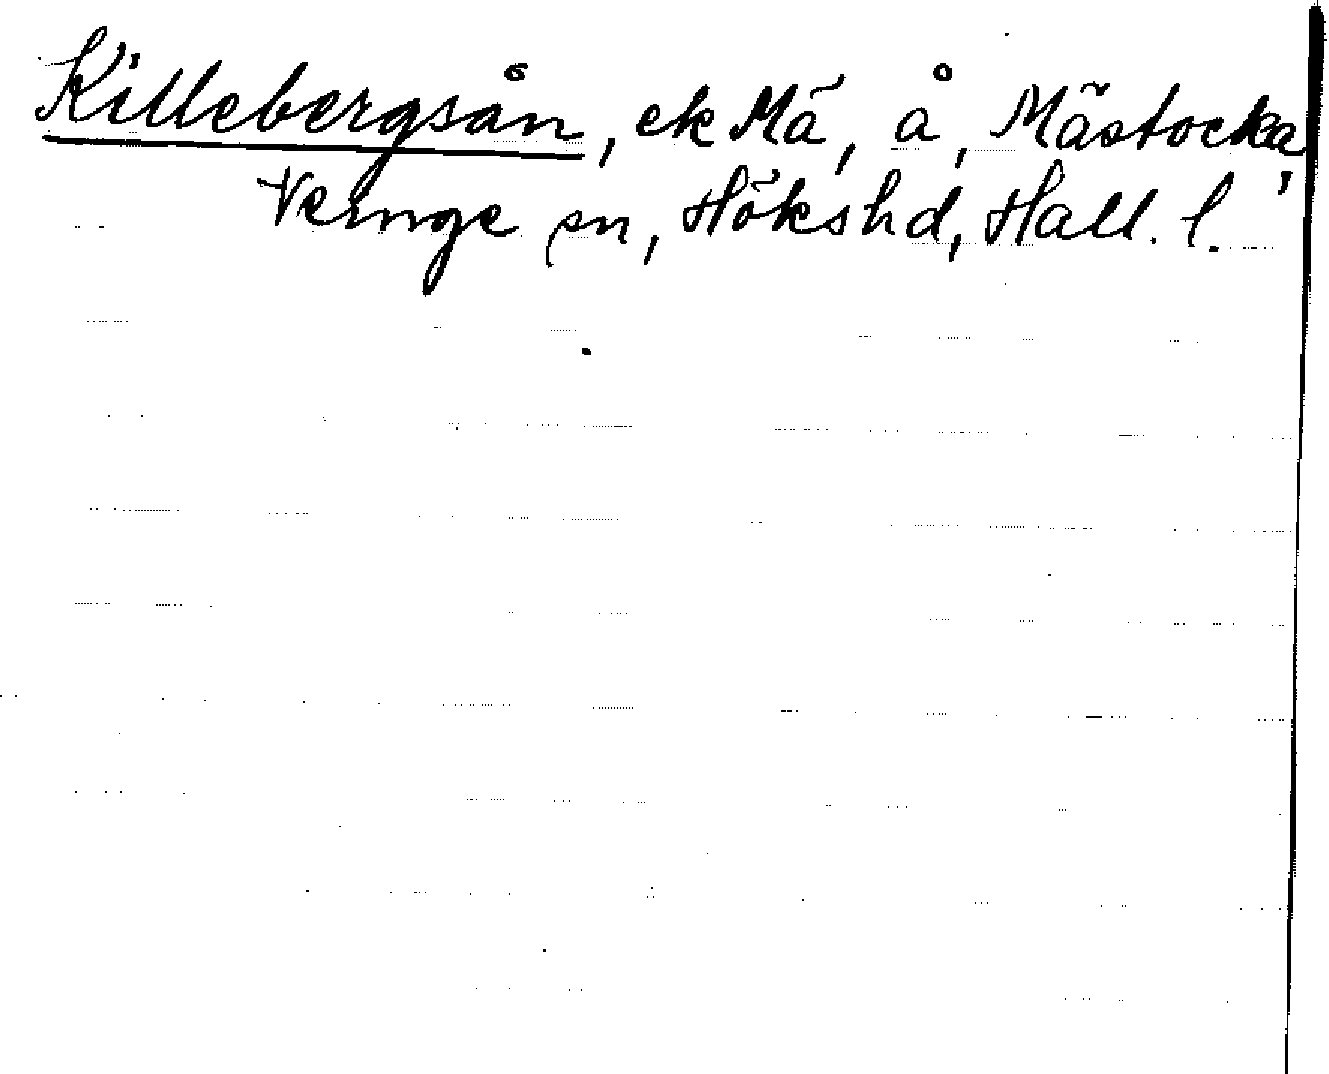 Killebergsån, ek Mä, å, Mästocka,
Veinge sn, Höks hd, Hall. l.